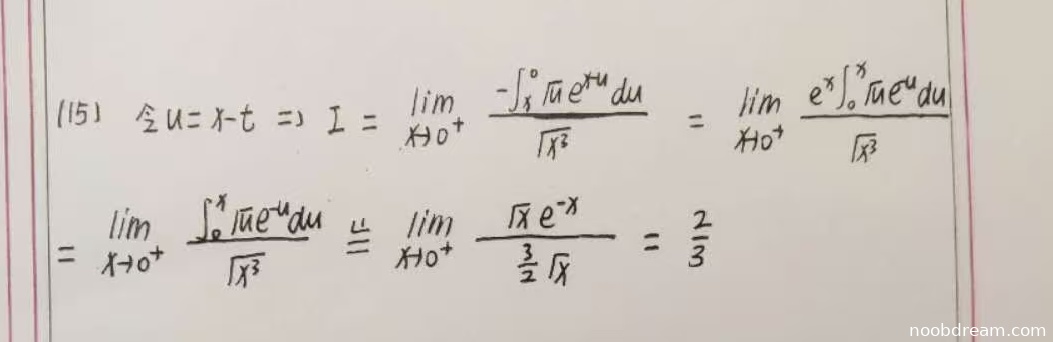 (15) 令 u = x-t => I = lim x→0⁺ (-∫ₓ⁰ √u eˣ⁻ᵘ du)/√x³ = lim x→0⁺ (eˣ ∫₀ˣ √u e⁻ᵘ du)/√x³
= lim x→0⁺ (∫₀ˣ √u e⁻ᵘ du)/√x³ 与= lim x→0⁺ (√x e⁻ˣ)/(3/2 √x) = 2/3
noobdream.com